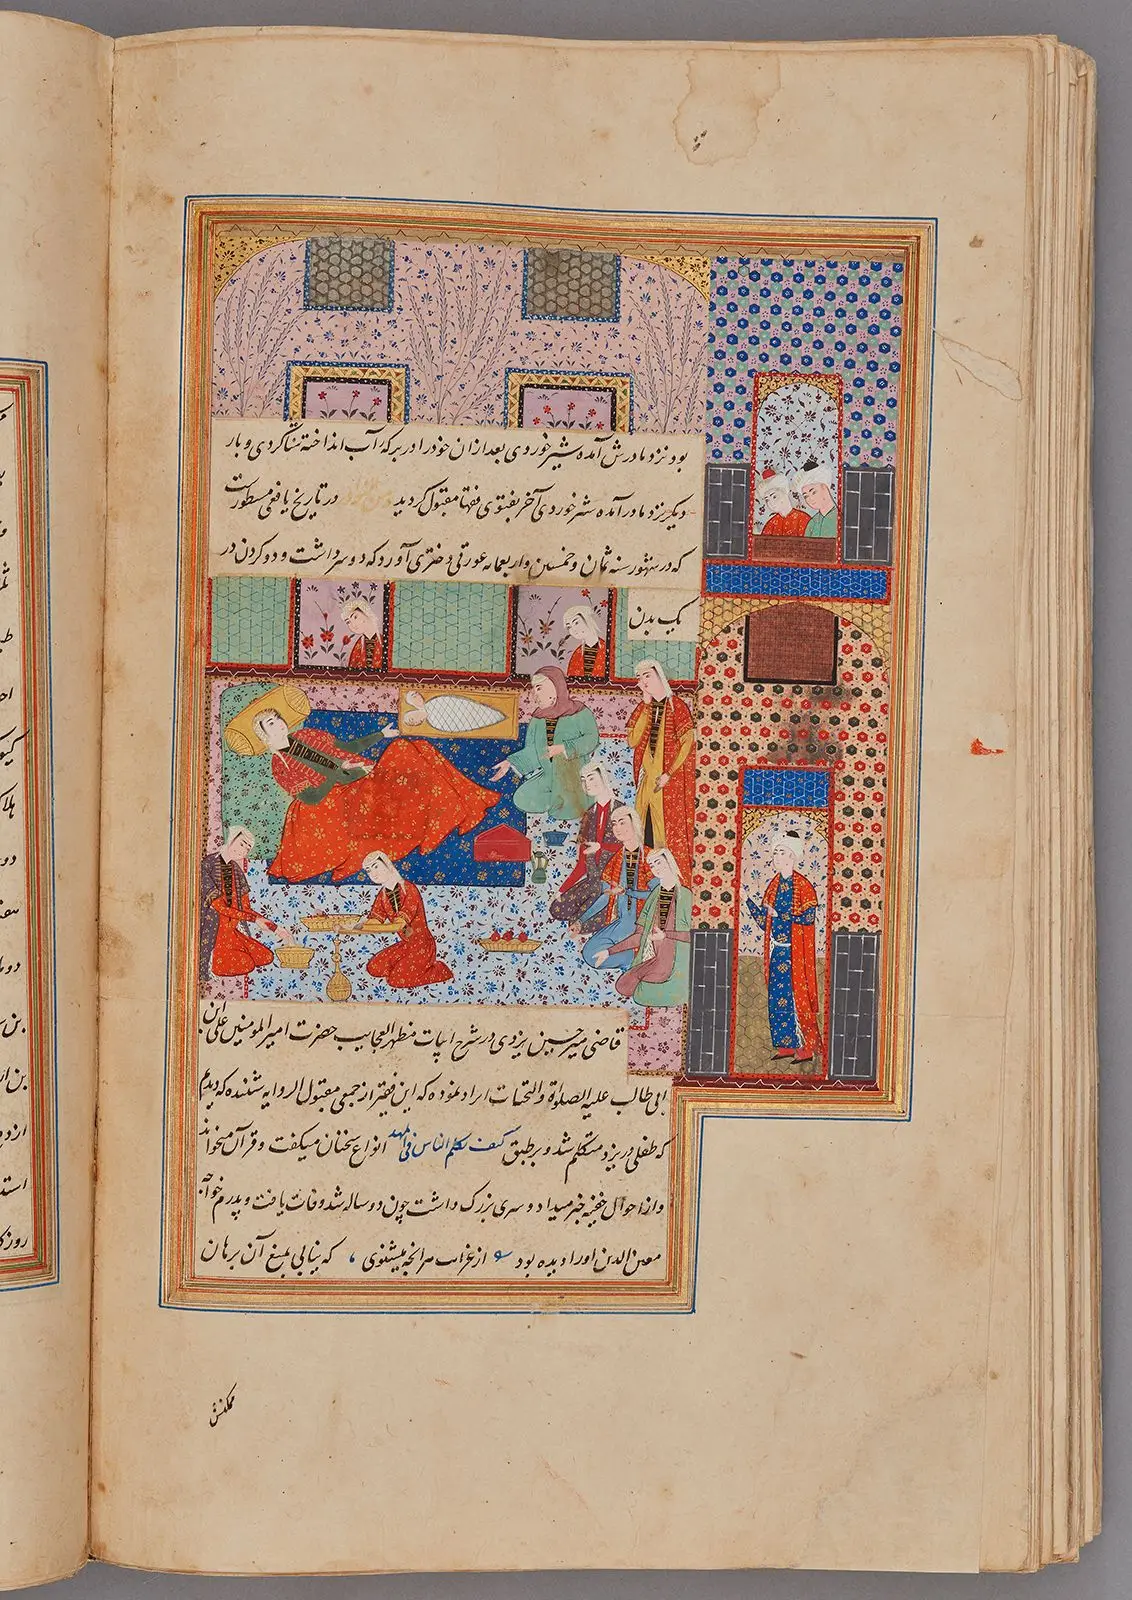 بود نزد مادرش آمده شیر خوردی بعد ازان خود را در برکه آب انداخته شنا کردی و بار
دیگر نزد مادر آمده شیر خوردی آخر بفتوی فقها مقتول کردید در تاریخ یافعی مسطورست
که در شهور سنه ثمان و خمسین و اربعمائه عورتی دختری آورد که دو سر داشت و دو کردن در
یک بدن
قاضی میر حسین یزدی در شرح ابیات مظهر العجایب حضرت امیر المومنین علی ابن
ابی طالب علیه الصلوة والتحیات ایراد نموده که این فقیر از جمعی مقبول الروایه شنیده که
که طفلی در یزد متکلم شد و بر طبق کیف تکلم الناس فی المهد انواع سخنان میکفت و قرآن میخواند
و از احوال خفیه خبر میداد و سری بزرک داشت چون دو ساله شد وفات یافت و پدرم خواجه
معین الدین او را دیده بود از غرایب هر انچه میشنوی که نیابی بمبلغ آن برهان
ممکنش